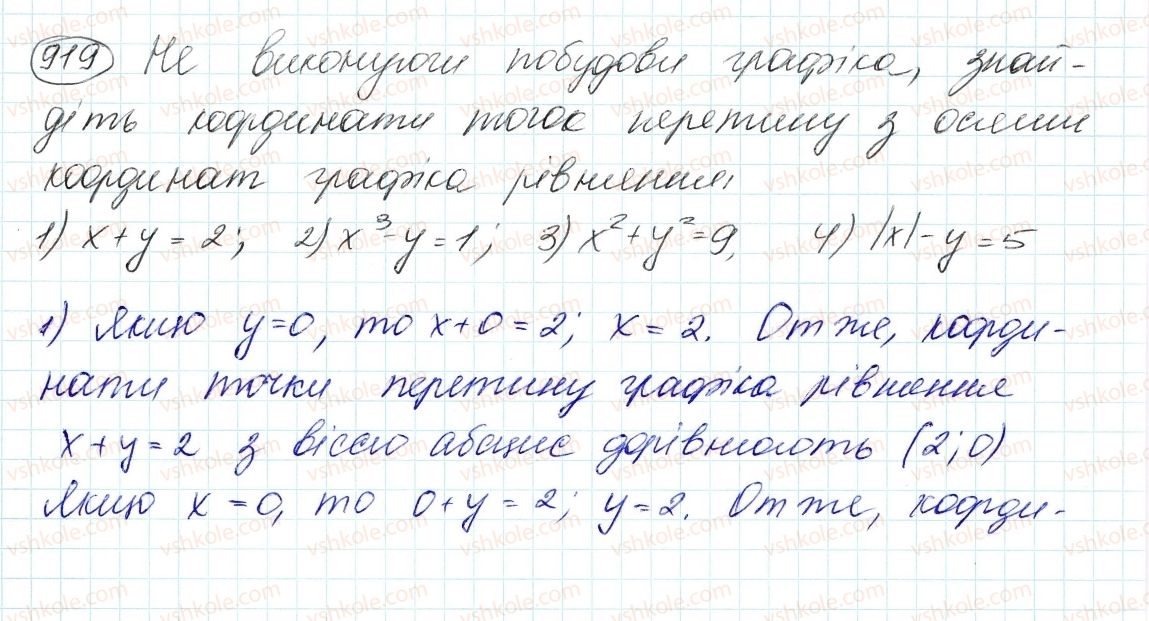 919 Не виконуючи побудови графіка, знай-
діть координати точок перетину з осями
координат графіка рівняння:
1) x + y = 2; 2) x³ - y = 1; 3) x² + y² = 9, 4) |x| - y = 5
1) Якщо y = 0, то x + 0 = 2; x = 2. Отже, коорди-
нати точки перетину графіка рівняння
x + y = 2 з віссю абсцис дорівнюють (2; 0)
Якщо x = 0, то 0 + y = 2; y = 2. Отже, коорди-